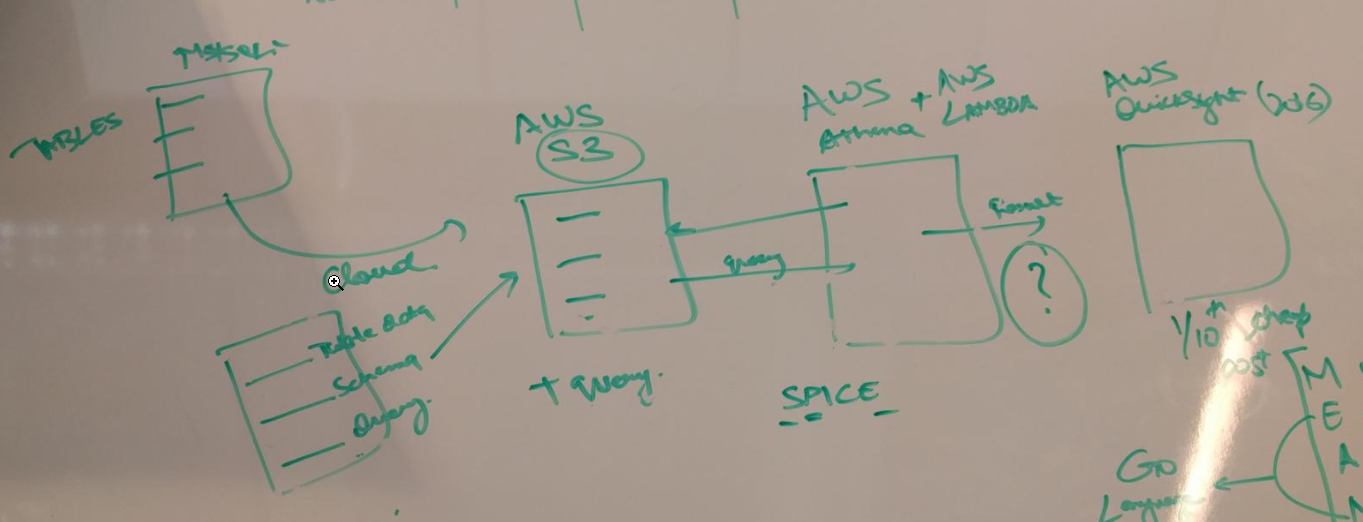 TABLES
Cloud
Table data
Schema
Query.
AWS
S3
+ query.
query
AWS + AWS
Athena LAMBDA
?
SPICE
AWS
QuickSight
1/10th cheap
cost
M
E
A
N
GO
Language